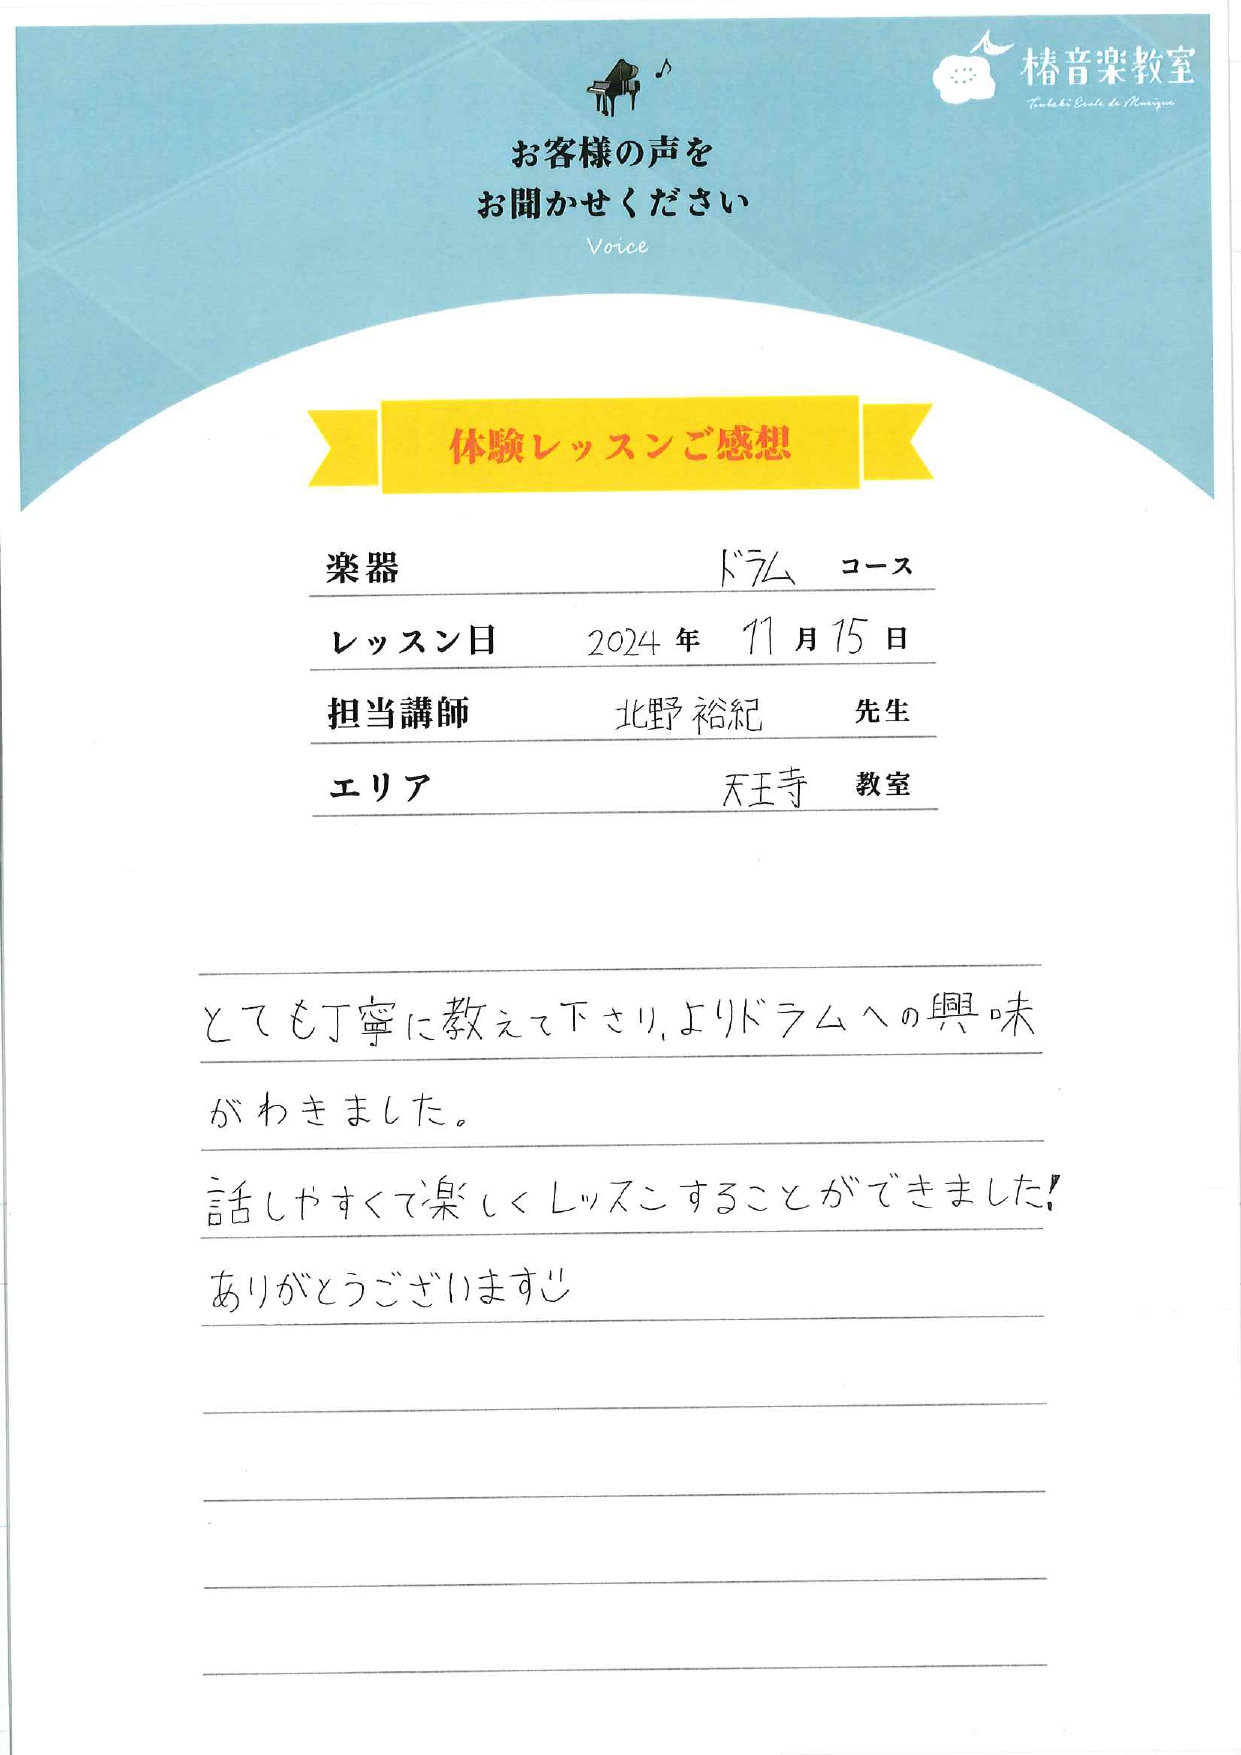 椿音楽教室
Tsubaki Ecole de Musique
お客様の声を
お聞かせください
Voice
体験レッスンご感想
楽器 ドラム コース
レッスン日 2024 年 11 月 15 日
担当講師 北野 裕紀 先生
エリア 天王寺 教室
とても丁寧に教えて下さり、よりドラムへの興味
がわきました。
話しやすくて楽しくレッスンすることができました!
ありがとうございます